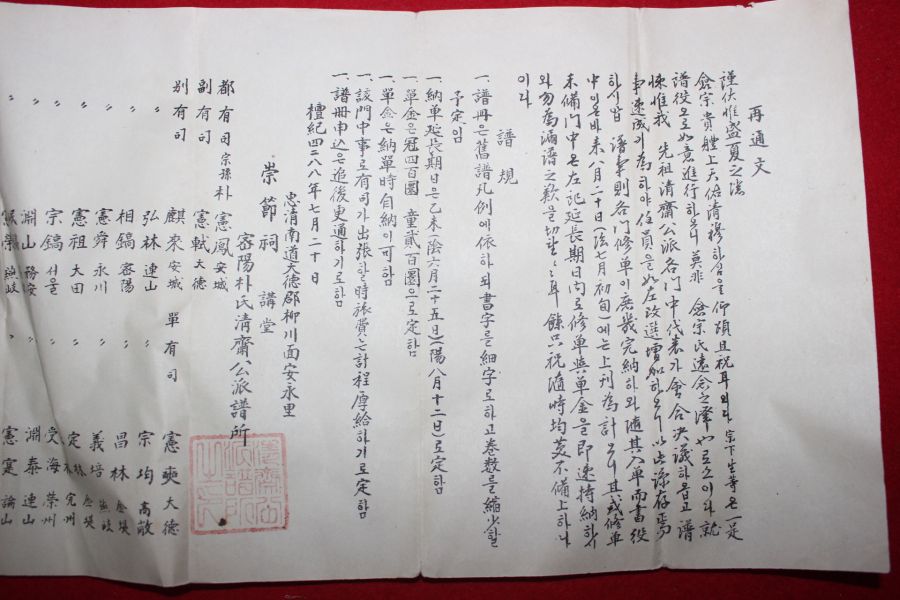 再通文
謹伏惟盛夏之
僉宗貴體上天佑淸穆하심을 仰頌且祝耳외다 宗下生等은 一是
譜役으로 如意進行하오니 莫非 僉宗氏遠念之澤也로소이다 就
悚惟我 先祖淸齋公派各門中代表가 會合決議하옵고 譜
事速成기 爲하야 任員을 如左改選增加하오니 以此諒存焉
하시압 譜事則各門修單이 庶幾完納하와 隨其入單而書役
中이온바 來八月二十日(陰七月初旬)에는 上刊爲計오니 且或修單
未備門中은 左記延長期日內로 修單與單金을 卽速持納하시
와 勿爲漏譜之歎을 切望〃〃耳 餘只祝隨時均 不備上하나
이다
譜規
一、譜冊은 舊譜凡例에 依하되 書字를 細字로 하고 卷數를 縮少할
予定임
一、納單延長期日은 乙未(陰六月二十五日)(陽八月十二日)로 定함
一、單金은 冠四百圜 童貳百圜으로 定함
一、單金은 納單時自納이 可함
一、該門中事로 有司가 出張한 時旅費는 計程厚給하기로 定함
一、譜冊申込은 追後更通하기로 함
檀紀四二八八年七月二十日
忠淸南道大德郡柳川面安永里
崇節祠講堂
密陽朴氏淸齋公派譜所
都有司 宗孫朴憲鳳 安城
副有司 憲軾 大德
別有司 麒來 安城 單有司 憲奭 大德
〃 弘林 連山 〃 宗均 高敞
〃 相鎬 密陽 〃 昌林
〃 憲舜 永川 〃 義培
〃 憲祖 大田 〃 定 完州
〃 宗鎬 서울 〃 受海 榮州
〃 淵山 務安 〃 淵泰 連山
〃 〃 憲寔 論山